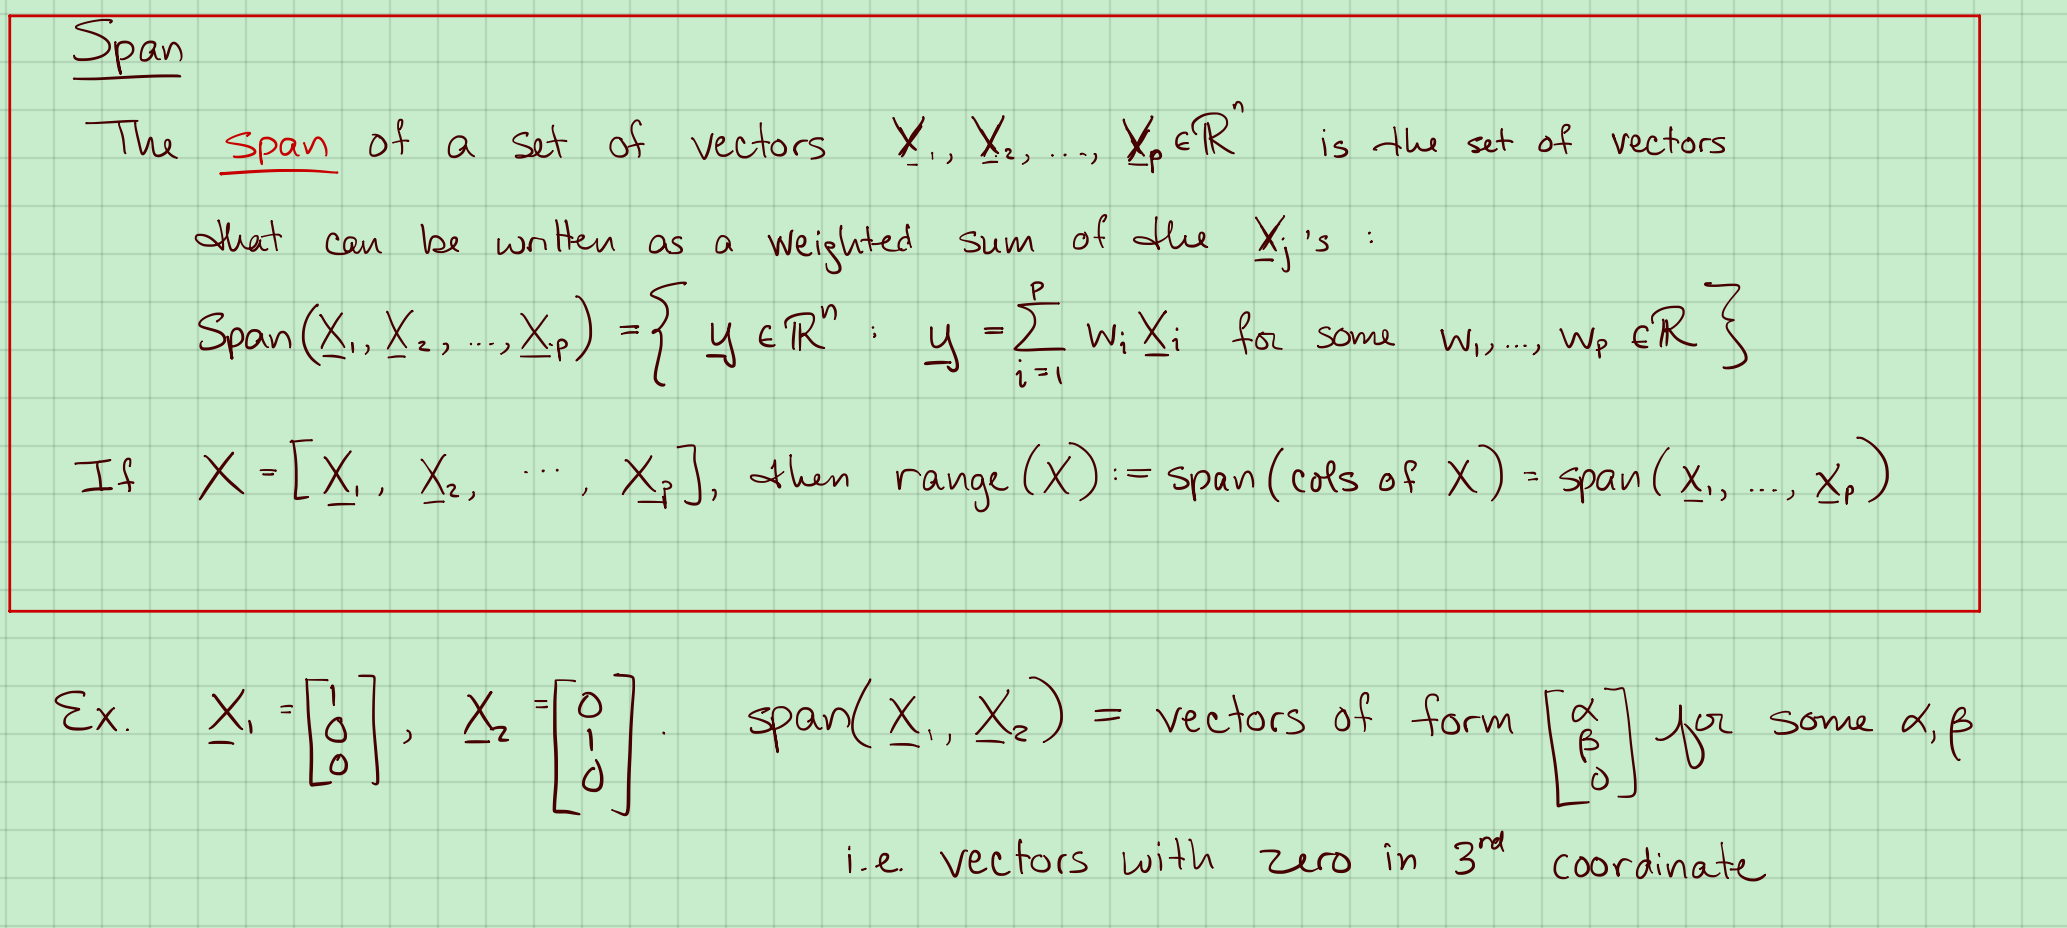 Span
The span of a set of vectors X₁, X₂, ..., Xₚ ∈ ℝⁿ is the set of vectors
that can be written as a weighted sum of the Xⱼ's :
Span(X₁, X₂, ..., Xₚ) = { y ∈ ℝⁿ : y = ∑_{i=1}^{p} wᵢ Xᵢ for some w₁, ..., wₚ ∈ ℝ }
If X = [X₁, X₂, ..., Xₚ], then range(X) := span(cols of X) = span(X₁, ..., Xₚ)
Ex. X₁ = [1 0 0], X₂ = [0 1 0]. span(X₁, X₂) = vectors of form [α β 0] for some α, β
i.e. vectors with zero in 3rd coordinate